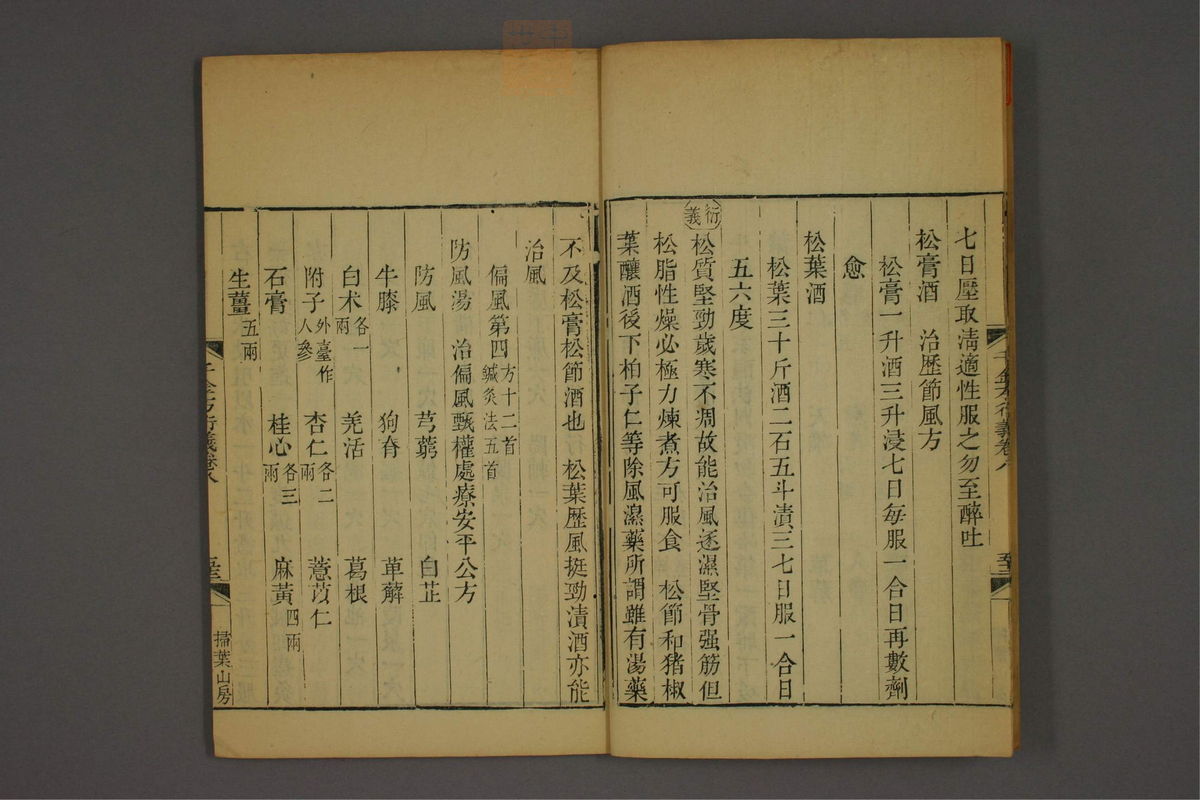 七日壓取淸適性服之勿至醉吐
松膏酒　治歷節風方
松膏一升酒三升浸七日每服一合日再數劑
愈
松葉酒
松葉三十斤酒二石五斗漬三七日服一合日
五六度
衍義
松質堅勁歲寒不凋故能治風逐濕堅骨强筋但
松脂性燥必極力煉煮方可服食　松節和猪椒
葉釀酒後下柏子仁等除風濕藥所謂雖有湯藥
不及松膏松節酒也　松葉歷風挺勁漬酒亦能
治風
偏風第四方十二首鍼灸法五首
防風湯　治偏風甄權處療安平公方
防風　芎藭　白芷
牛膝　狗脊　萆薢
白朮各一兩　羌活　葛根
附子外臺作人參　杏仁各二兩　薏苡仁
石膏　桂心各三兩　麻黃四兩
生薑五兩
千金方衍義卷八
掃葉山房